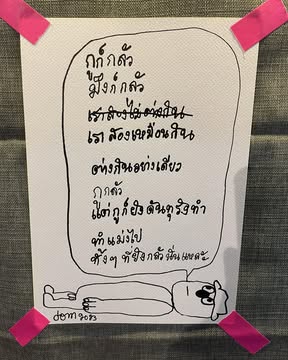 กูก็กลัว
มึงก็กลัว
เราสองไม่ต่างกัน
เราสองเหมือนกัน
ต่างกันอย่างเดียว
กูกลัว
แต่กูก็ยังดันทุรังทำ
ทำแม่งไป
ทั้งๆ ที่ยังกลัวนั่นแหละ
2023